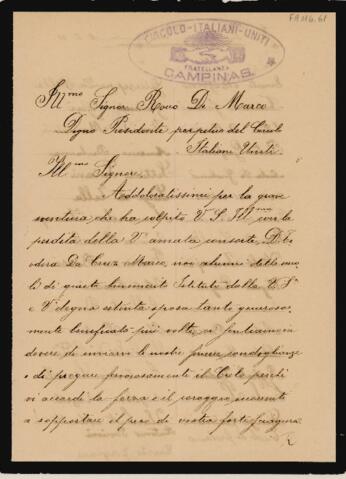 FAM6.61
CIRCOLO-ITALIANI-UNITI
FRATELLANZA
CAMPINAS.
Ill.mo Signor Rocco Di Marco
Degno Presidente perpetuo del Circolo
Italiani Uniti.
Ill.mo Signore,
Addoloratissimi per la grave
sventura che ha colpito V. S. Ill.ma con la
perdita della V.a amata consorte, D.
Da Cruz Marco, noi alunni delle scuo
le di questo Istituto dalla V. S.
e V.a degna estinta sposa tanto generosa-
mente beneficato più volte, ci sentiamo in
dovere di inviarvi le nostre condoglianze
e di pregare fervorosamente il Cielo perché
vi accordi la forza e il coraggio necessari
a sopportare il peso di vostra forte